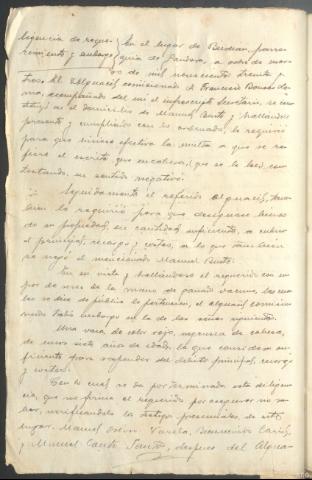 ligencia de reque- En el lugar de Berdeas, parro-
rimiento y embargo quia de Pandora, a ocho de mar-
zo de mil novecientos treinta y
tres. El Alguacil comisionado D. Francisco Bouzas
acompañado de mi el infrascrito Secretario, se cons-
tituyó en el domicilio de Manuel y hallándole
presente y cumpliendo con lo ordenado, le requirió
para que hiciese efectiva la multa a que se re-
fiere el escrito que encabeza, que se le leió, con-
testando, en sentido negativo.
Seguidamente el referido alguacil, tam-
bien lo requirió para que designase bienes
de su propiedad, en cantidad suficiente, a cubrir
el principal, recargo y costas, a lo que tambien
se negó el mencionado Manuel
En su vista y hallándose el requerido con un
par de reses de la mano de ganado vacuno, las cua-
les se dice de público le pertenecen, el alguacil comisio-
nado trabó embargo en la de las señas siguientes:
Una vaca de color rojo, de cabeza,
de unos siete años de edad, la que considera su-
ficiente para responder del débito principal, recargo
y costas.
Con lo cual se da por terminada esta diligen-
cia, que no firma el requerido por asegurar no sa-
ber, verificándolo los testigos presenciales, de este
lugar, Manuel Varela,
y Manuel Canto Santos, despues del Algua-